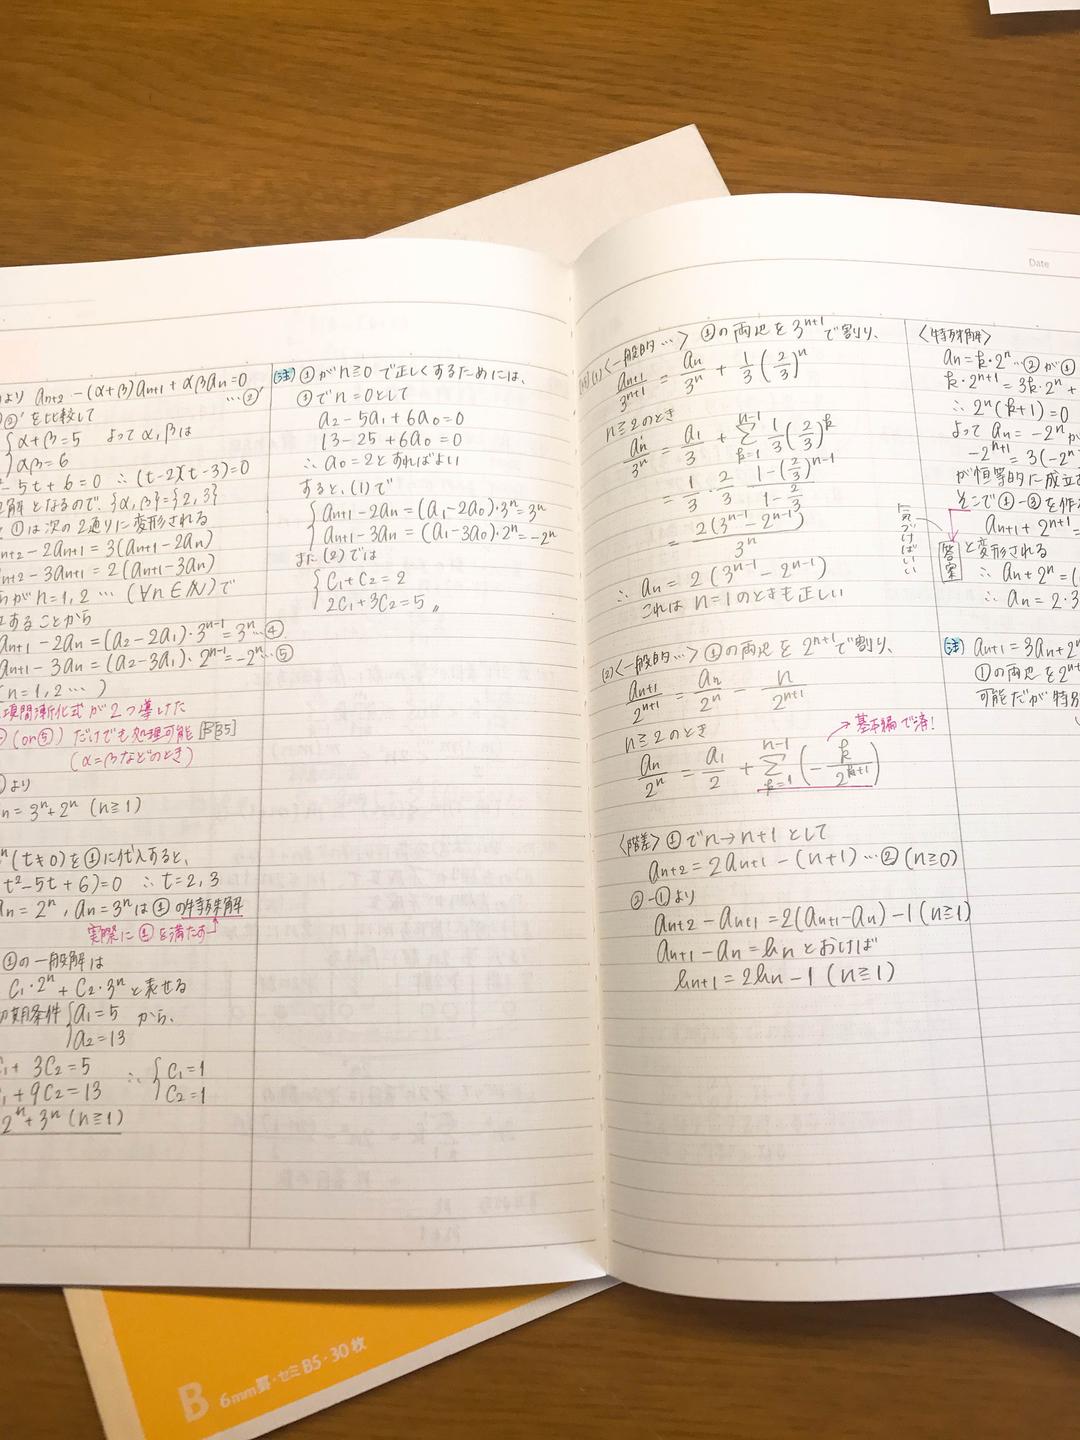 Date
より an+2 -(α+β)an+1 + αβan=0
…②'
②'を比較して
α+β=5 よってα,βは
αβ=6
-5t+6=0 ∴(t-2)(t-3)=0
解となるので、{α,β}={2,3}
①は次の2通りに変形される
an+2-2an+1=3(an+1-2an)
an+2-3an+1=2(an+1-3an)
がn=1,2…(∀n∈N)で
することから
an+1-2an=(a2-2a1)・3^(n-1)=3^n…④
an+1-3an=(a2-3a1)・2^(n-1)=-2^n…⑤
(n=1,2…)
項間漸化式が2つ導けた
(or⑤)だけでも処理可能
(α=βなどのとき)
より
n=3^n+2^n (n≧1)
(t≠0)を①に代入すると、
t²-5t+6)=0 ∴t=2,3
an=2^n, an=3^nは①の特殊解
実際に①を満たす
①の一般解は
C1・2^n+C2・3^nと表せる
初期条件{a1=5 から、
a2=13
+3C2=5 ∴{C1=1
+9C2=13 C2=1
2^n+3^n (n≧1)
(注)①がn≧0で正しくするためには、
①でn=0として
a2-5a1+6a0=0
13-25+6a0=0
∴a0=2とすればよい
すると、(1)で
an+1-2an=(a1-2a0)・3^n=3^n
an+1-3an=(a1-3a0)・2^n=-2^n
また(2)では
C1+C2=2
2C1+3C2=5〃
(1)<一般的…>①の両辺を3^(n+1)で割り、
an+1/3^(n+1)=an/3^n+1/3(2/3)^n
n≧2のとき
an/3^n=a1/3+Σ[k=1→n-1] 1/3(2/3)^k
=1/3・2/3・(1-(2/3)^(n-1))/(1-2/3)
=2(3^(n-1)-2^(n-1))/3^n
∴an=2(3^(n-1)-2^(n-1))
これはn=1のときも正しい
(2)<一般的…>①の両辺を2^(n+1)で割り、
an+1/2^(n+1)=an/2^n-n/2^(n+1)
n≧2のとき
→基本編で済!
an/2^n=a1/2+Σ[k=1→n-1](-k/2^(k+1))
<階差>①でn→n+1として
an+2=2an+1-(n+1)…②(n≧0)
②-①より
an+2-an+1=2(an+1-an)-1(n≧1)
an+1-an=bnとおけば
bn+1=2bn-1(n≧1)
<特殊解>
an=k・2^n…②が①
k・2^(n+1)=3k・2^n+
∴2^n(k+1)=0
よってan=-2^nが
-2^(n+1)=3(-2^n)
が恒等的に成立
そこで①-③を作
気づけばいい
答案
an+1+2^(n+1)=
と変形される
∴an+2^n=(
∴an=2・3
(注)an+1=3an+2^n
①の両辺を2^(n+1)
可能だが特殊
B 6mm罫・セミB5・30枚